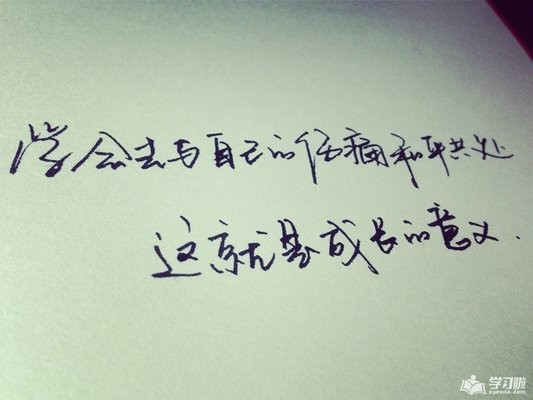 学会去与自己的伤痛和平共处
这就是成长的意义.
学习啦
xuexila.com